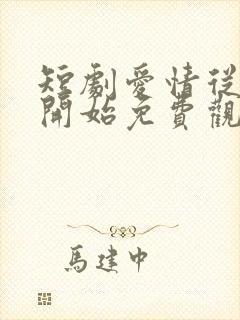 短劇愛情從
開始免費觀
馬建中